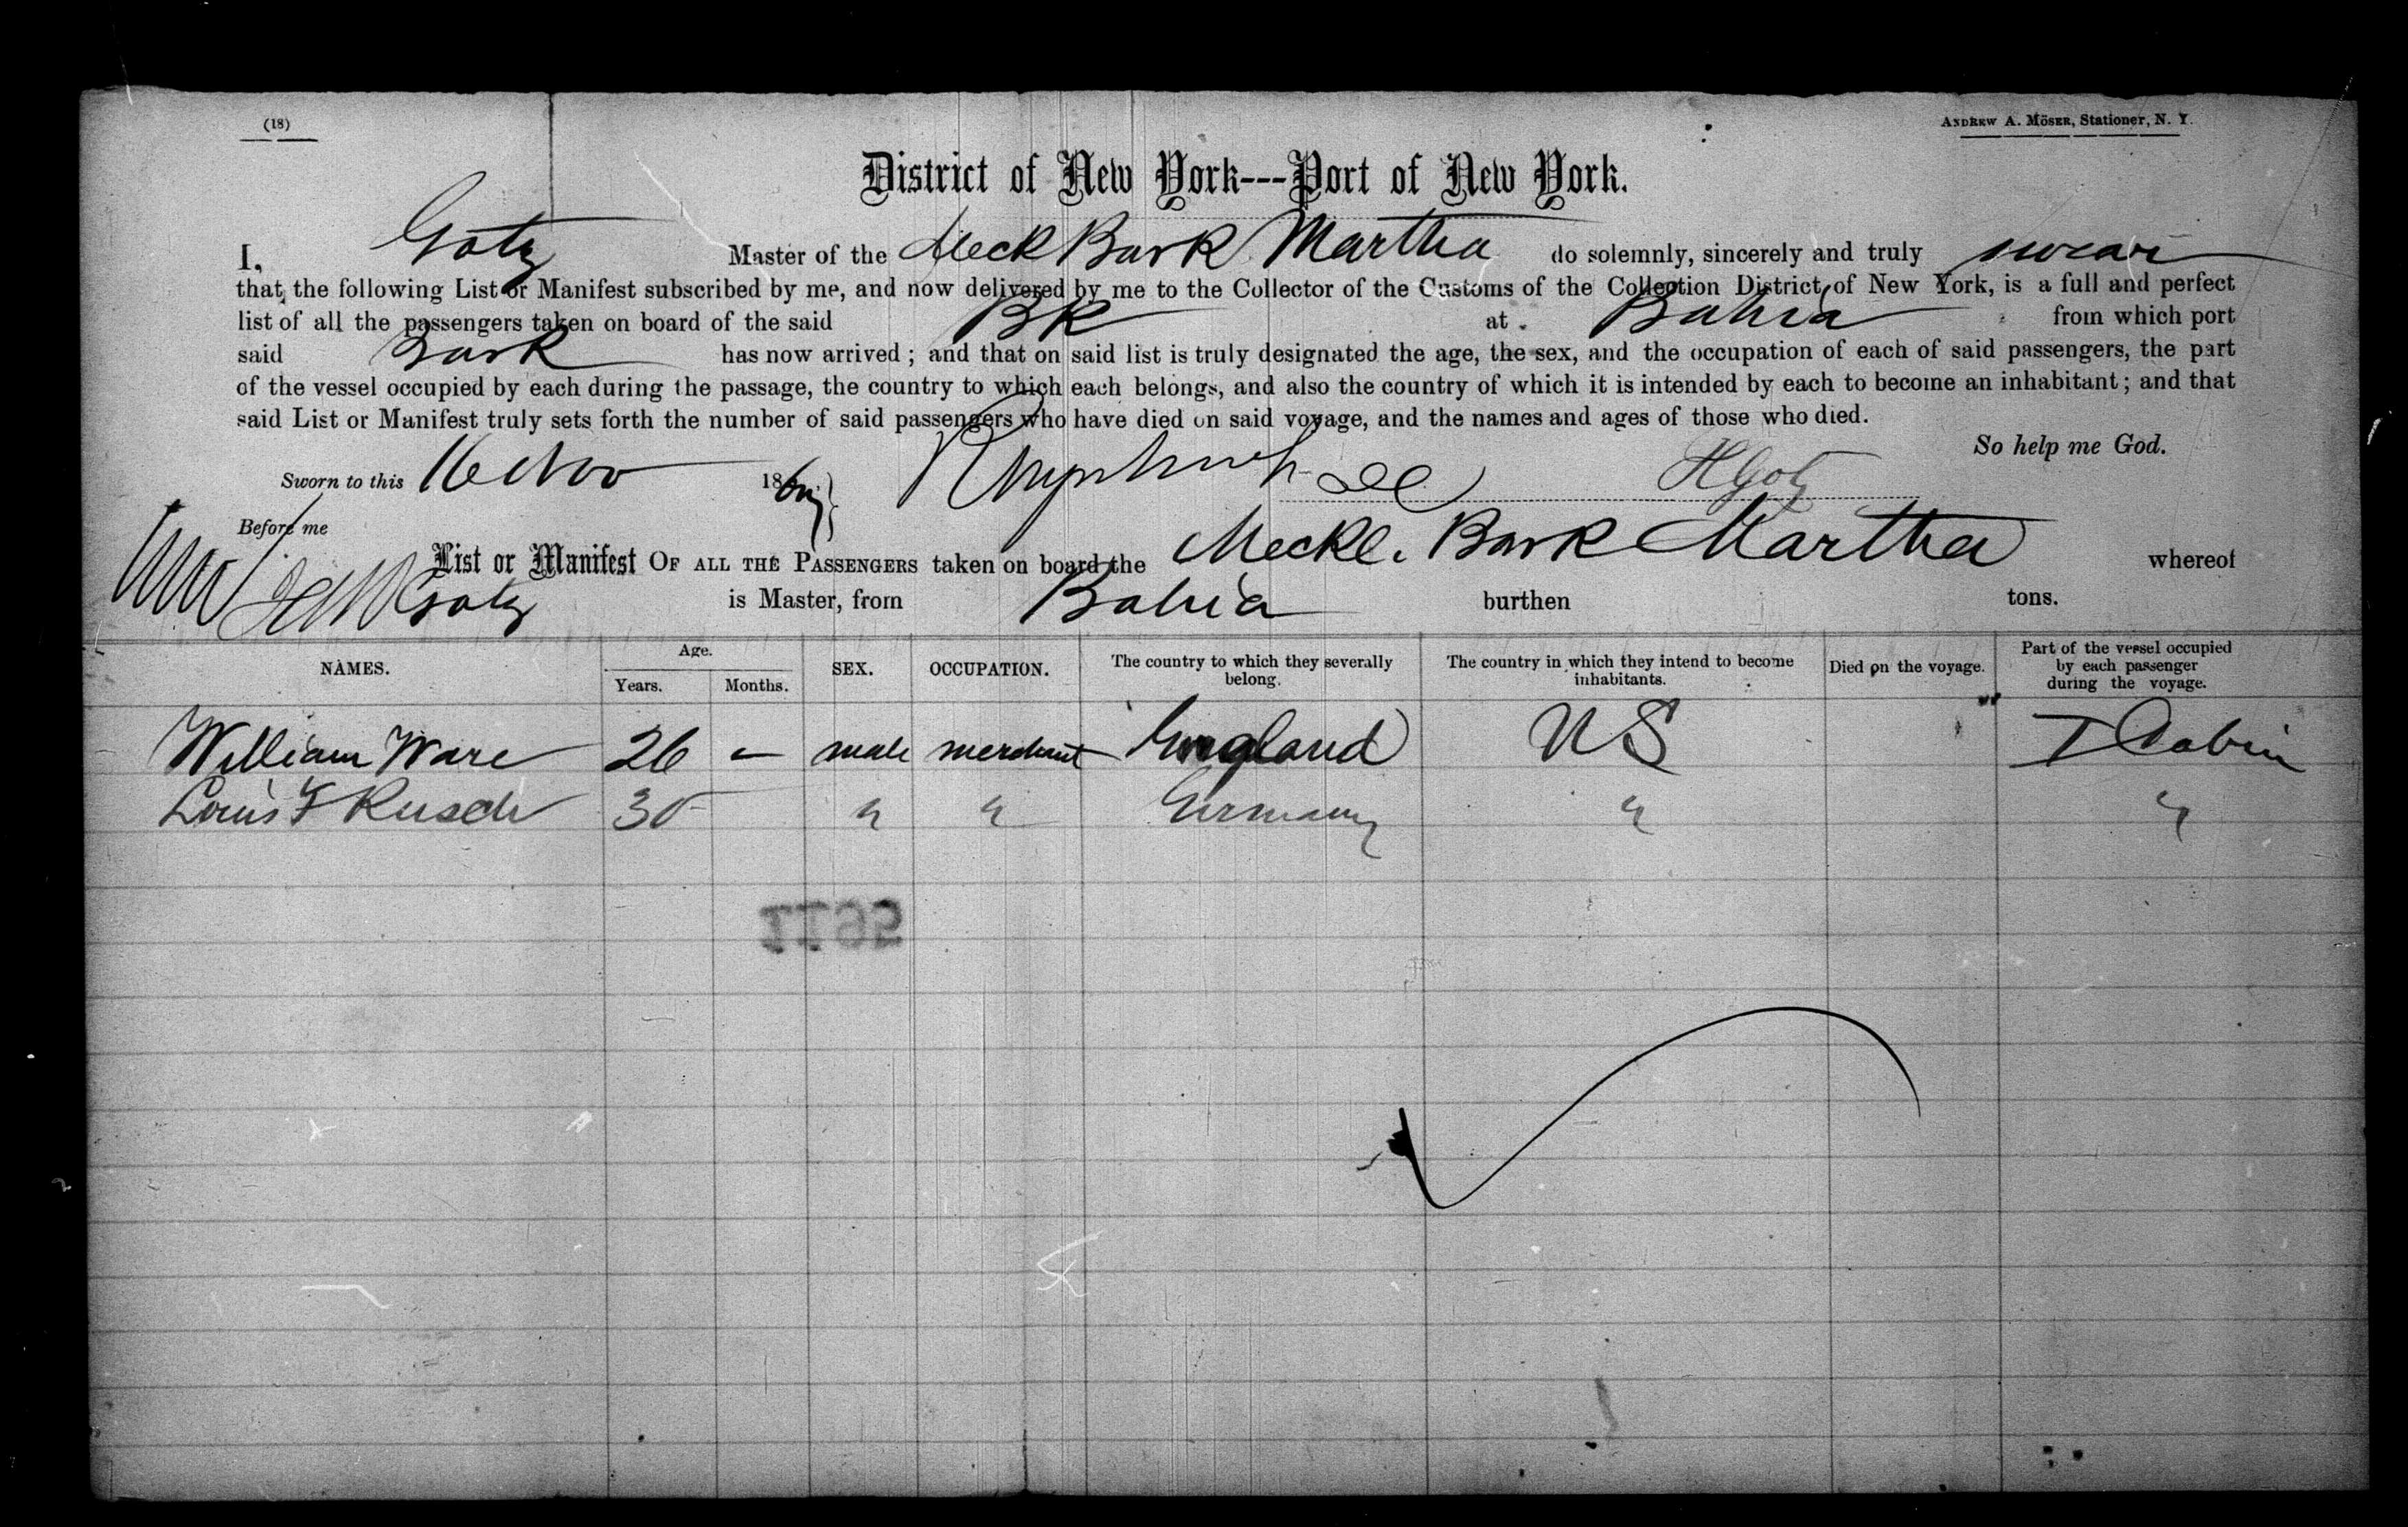 (18)
ANDREW A. MÖSER, Stationer, N. Y.
District of New York---Port of New York.
I, Gotz Master of the Meck Bark Martha do solemnly, sincerely and truly swear
that the following List or Manifest subscribed by me, and now delivered by me to the Collector of the Customs of the Collection District of New York, is a full and perfect
list of all the passengers taken on board of the said BK at Bahia from which port
said Bark has now arrived; and that on said list is truly designated the age, the sex, and the occupation of each of said passengers, the part
of the vessel occupied by each during the passage, the country to which each belongs, and also the country of which it is intended by each to become an inhabitant; and that
said List or Manifest truly sets forth the number of said passengers who have died on said voyage, and the names and ages of those who died.
So help me God.
Sworn to this 16 Nov 18 H Gotz
Before me
List or Manifest OF ALL THE PASSENGERS taken on board the Meckl. Bark Martha whereof
Gotz is Master, from Bahia burthen tons.
NAMES. Age. Years. Months. SEX. OCCUPATION. The country to which they severally belong. The country in which they intend to become inhabitants. Died on the voyage. Part of the vessel occupied by each passenger during the voyage.
William Ware 26 — male merchant England US I Cabin
Louis F Rusch 30 " " Germany " "
1195